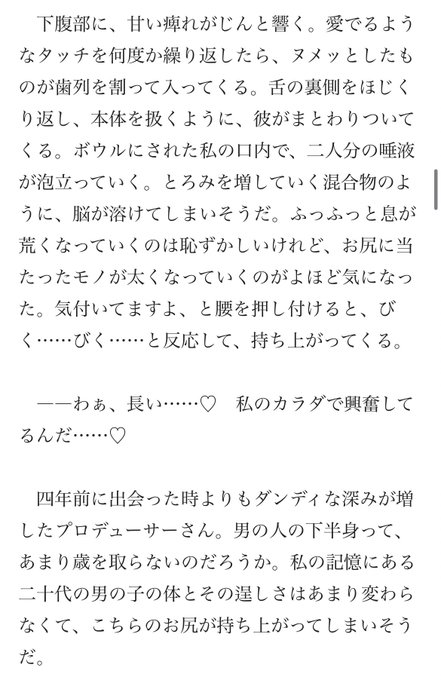 下腹部に、甘い痺れがじんと響く。愛でるよう
なタッチを何度か繰り返したら、ヌメッとしたも
のが歯列を割って入ってくる。舌の裏側をほじく
り返し、本体を扱くように、彼がまとわりついて
くる。ボウルにされた私の口内で、二人分の唾液
が泡立っていく。とろみを増していく混合物のよ
うに、脳が溶けてしまいそうだ。ふっふっと息が
荒くなっていくのは恥ずかしいけれど、お尻に当
たったモノが太くなっていくのがよほど気になっ
た。気付いてますよ、と腰を押し付けると、び
く……びく……と反応して、持ち上がってくる。

　――わぁ、長い……♡　私のカラダで興奮して
るんだ……♡

　四年前に出会った時よりもダンディな深みが増
したプロデューサーさん。男の人の下半身って、
あまり歳を取らないのだろうか。私の記憶にある
二十代の男の子の体とその逞しさはあまり変わら
なくて、こちらのお尻が持ち上がってしまいそう
だ。